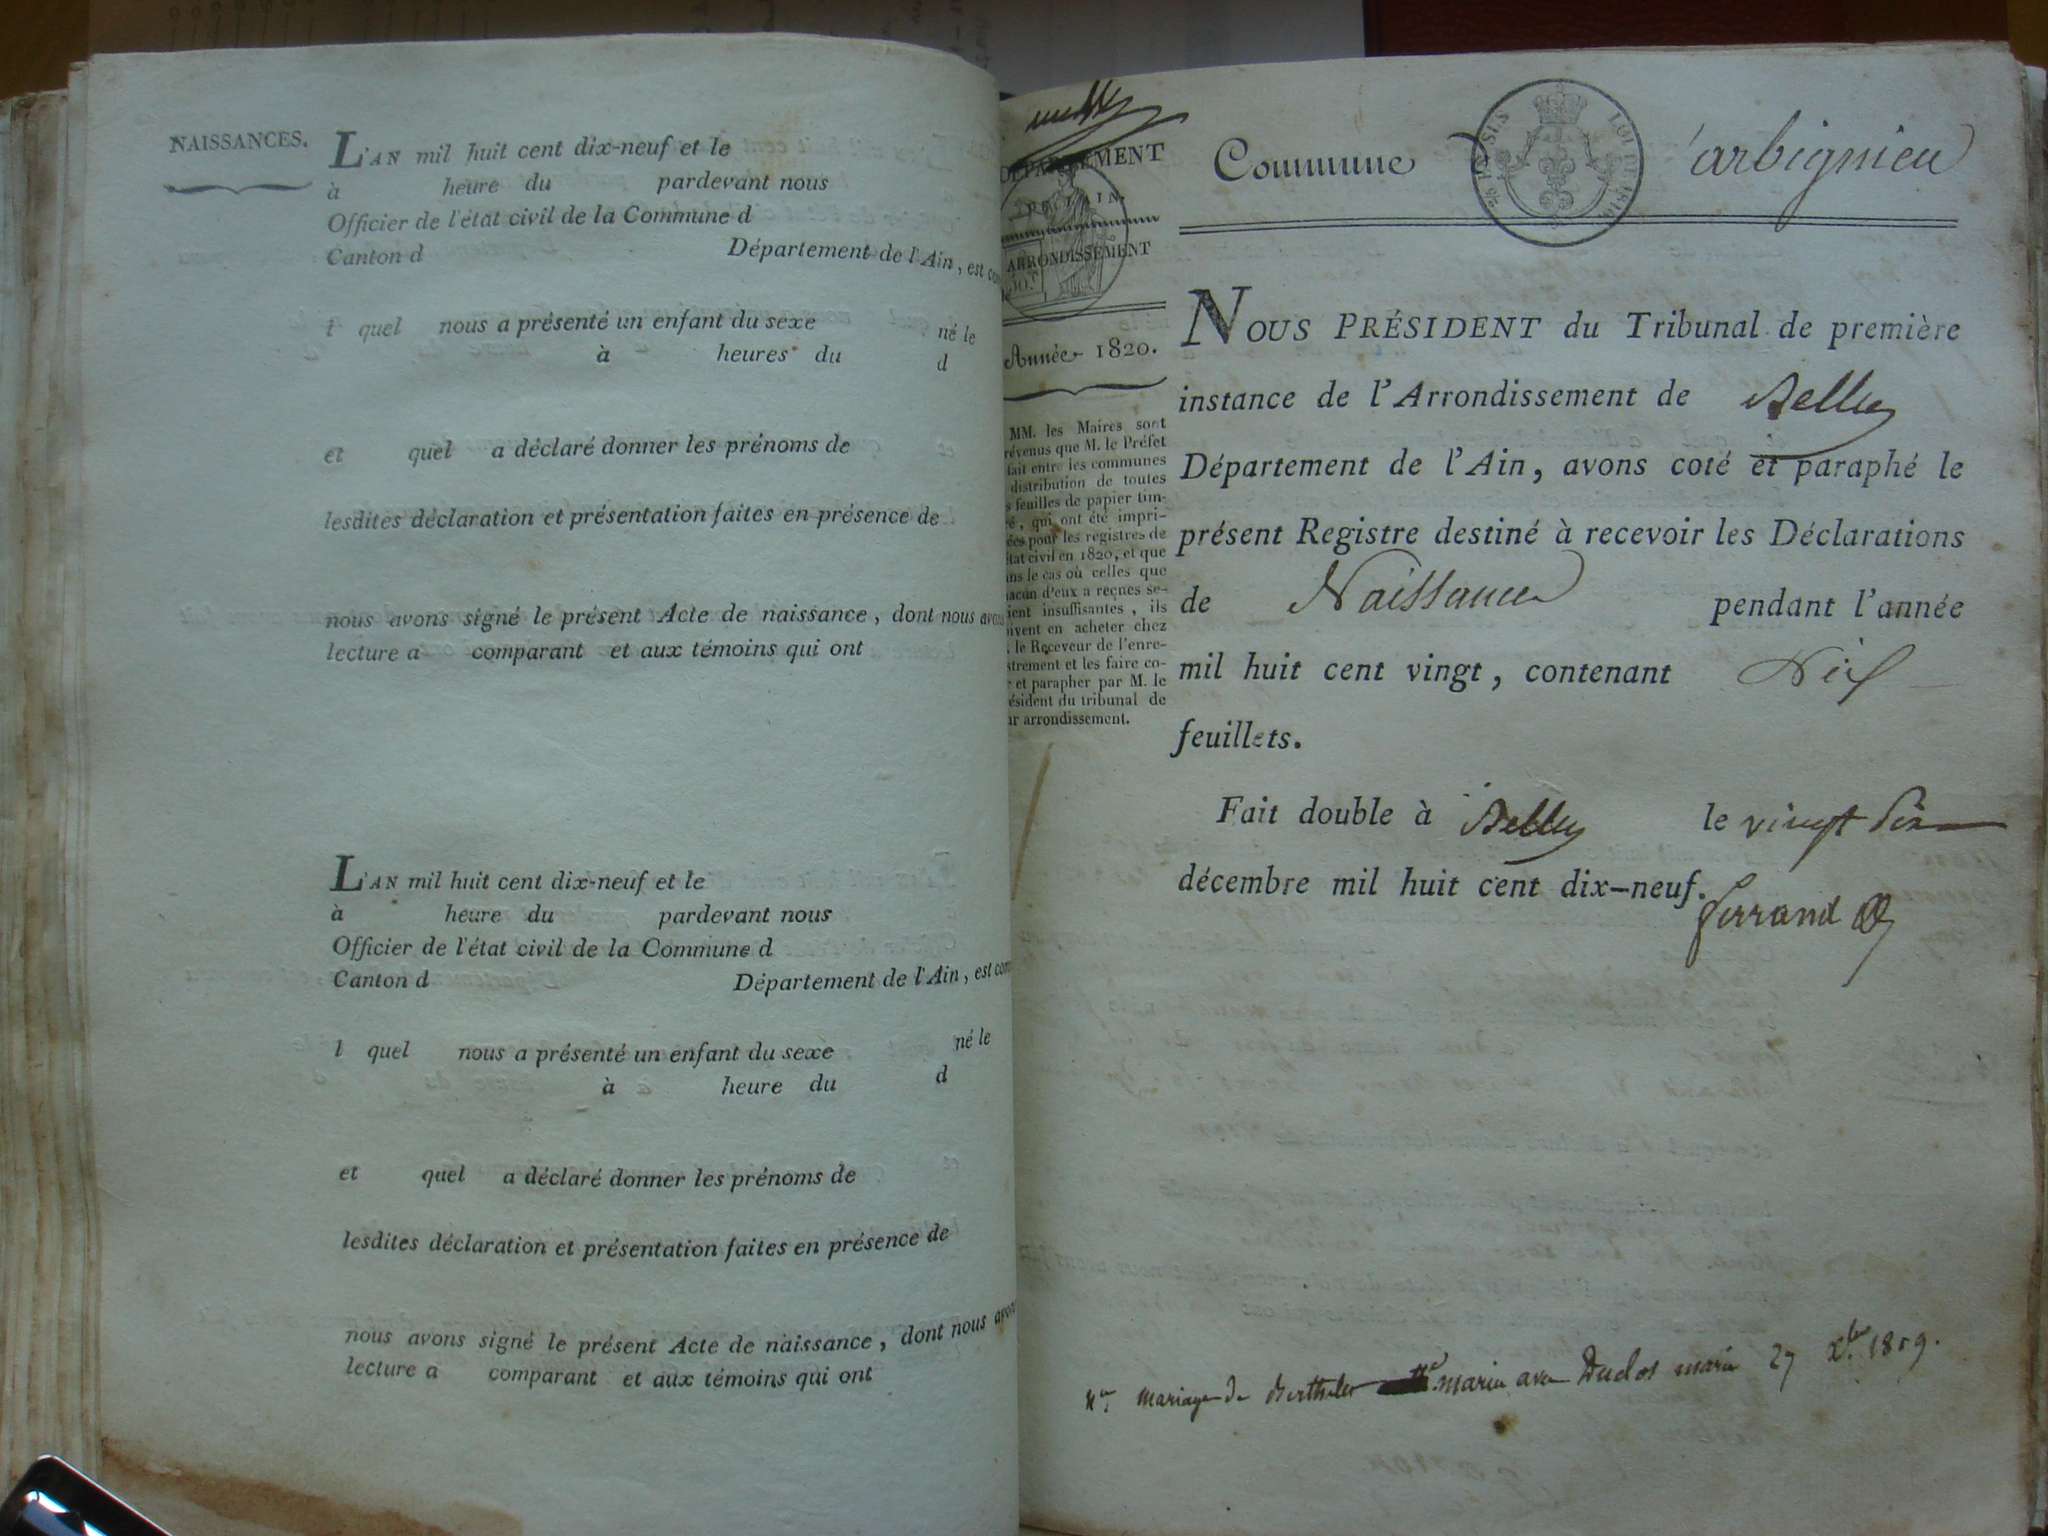 NAISSANCES.
L'AN mil huit cent dix-neuf et le
à heure du pardevant nous
Officier de l'état civil de la Commune d
Canton d Département de l'Ain, est com
l quel nous a présenté un enfant du sexe né le
à heures du d
et quel a déclaré donner les prénoms de
lesdites déclaration et présentation faites en présence de
nous avons signé le présent Acte de naissance, dont nous avons
lecture a comparant et aux témoins qui ont
L'AN mil huit cent dix-neuf et le
à heure du pardevant nous
Officier de l'état civil de la Commune d
Canton d Département de l'Ain, est com
l quel nous a présenté un enfant du sexe né le
à heure du d
et quel a déclaré donner les prénoms de
lesdites déclaration et présentation faites en présence de
nous avons signé le présent Acte de naissance, dont nous avons
lecture a comparant et aux témoins qui ont
DÉPARTEMENT
DE L'AIN.
ARRONDISSEMENT
Année 1820.
MM. les Maires sont
révenus que M. le Préfet
fait entre les communes
distribution de toutes
s feuilles de papier tim-
ré, qui ont été impri-
ées pour les registres de
état civil en 1820, et que
ans le cas où celles que
hacun d'eux a reçues se-
ient insuffisantes, ils
oivent en acheter chez
. le Receveur de l'enre-
strement et les faire co-
r et parapher par M. le
ésident du tribunal de
ur arrondissement.
Commune D'arbignieu
LOI DE 1816
NOUS PRÉSIDENT du Tribunal de première
instance de l'Arrondissement de Belley
Département de l'Ain, avons coté et paraphé le
présent Registre destiné à recevoir les Déclarations
de Naissance pendant l'année
mil huit cent vingt, contenant
feuillets.
Fait double à Belley le vingt six
décembre mil huit cent dix-neuf.
ferrand
mariage de Berthelier marie avec Duclos marin 27 Xbre 1819.